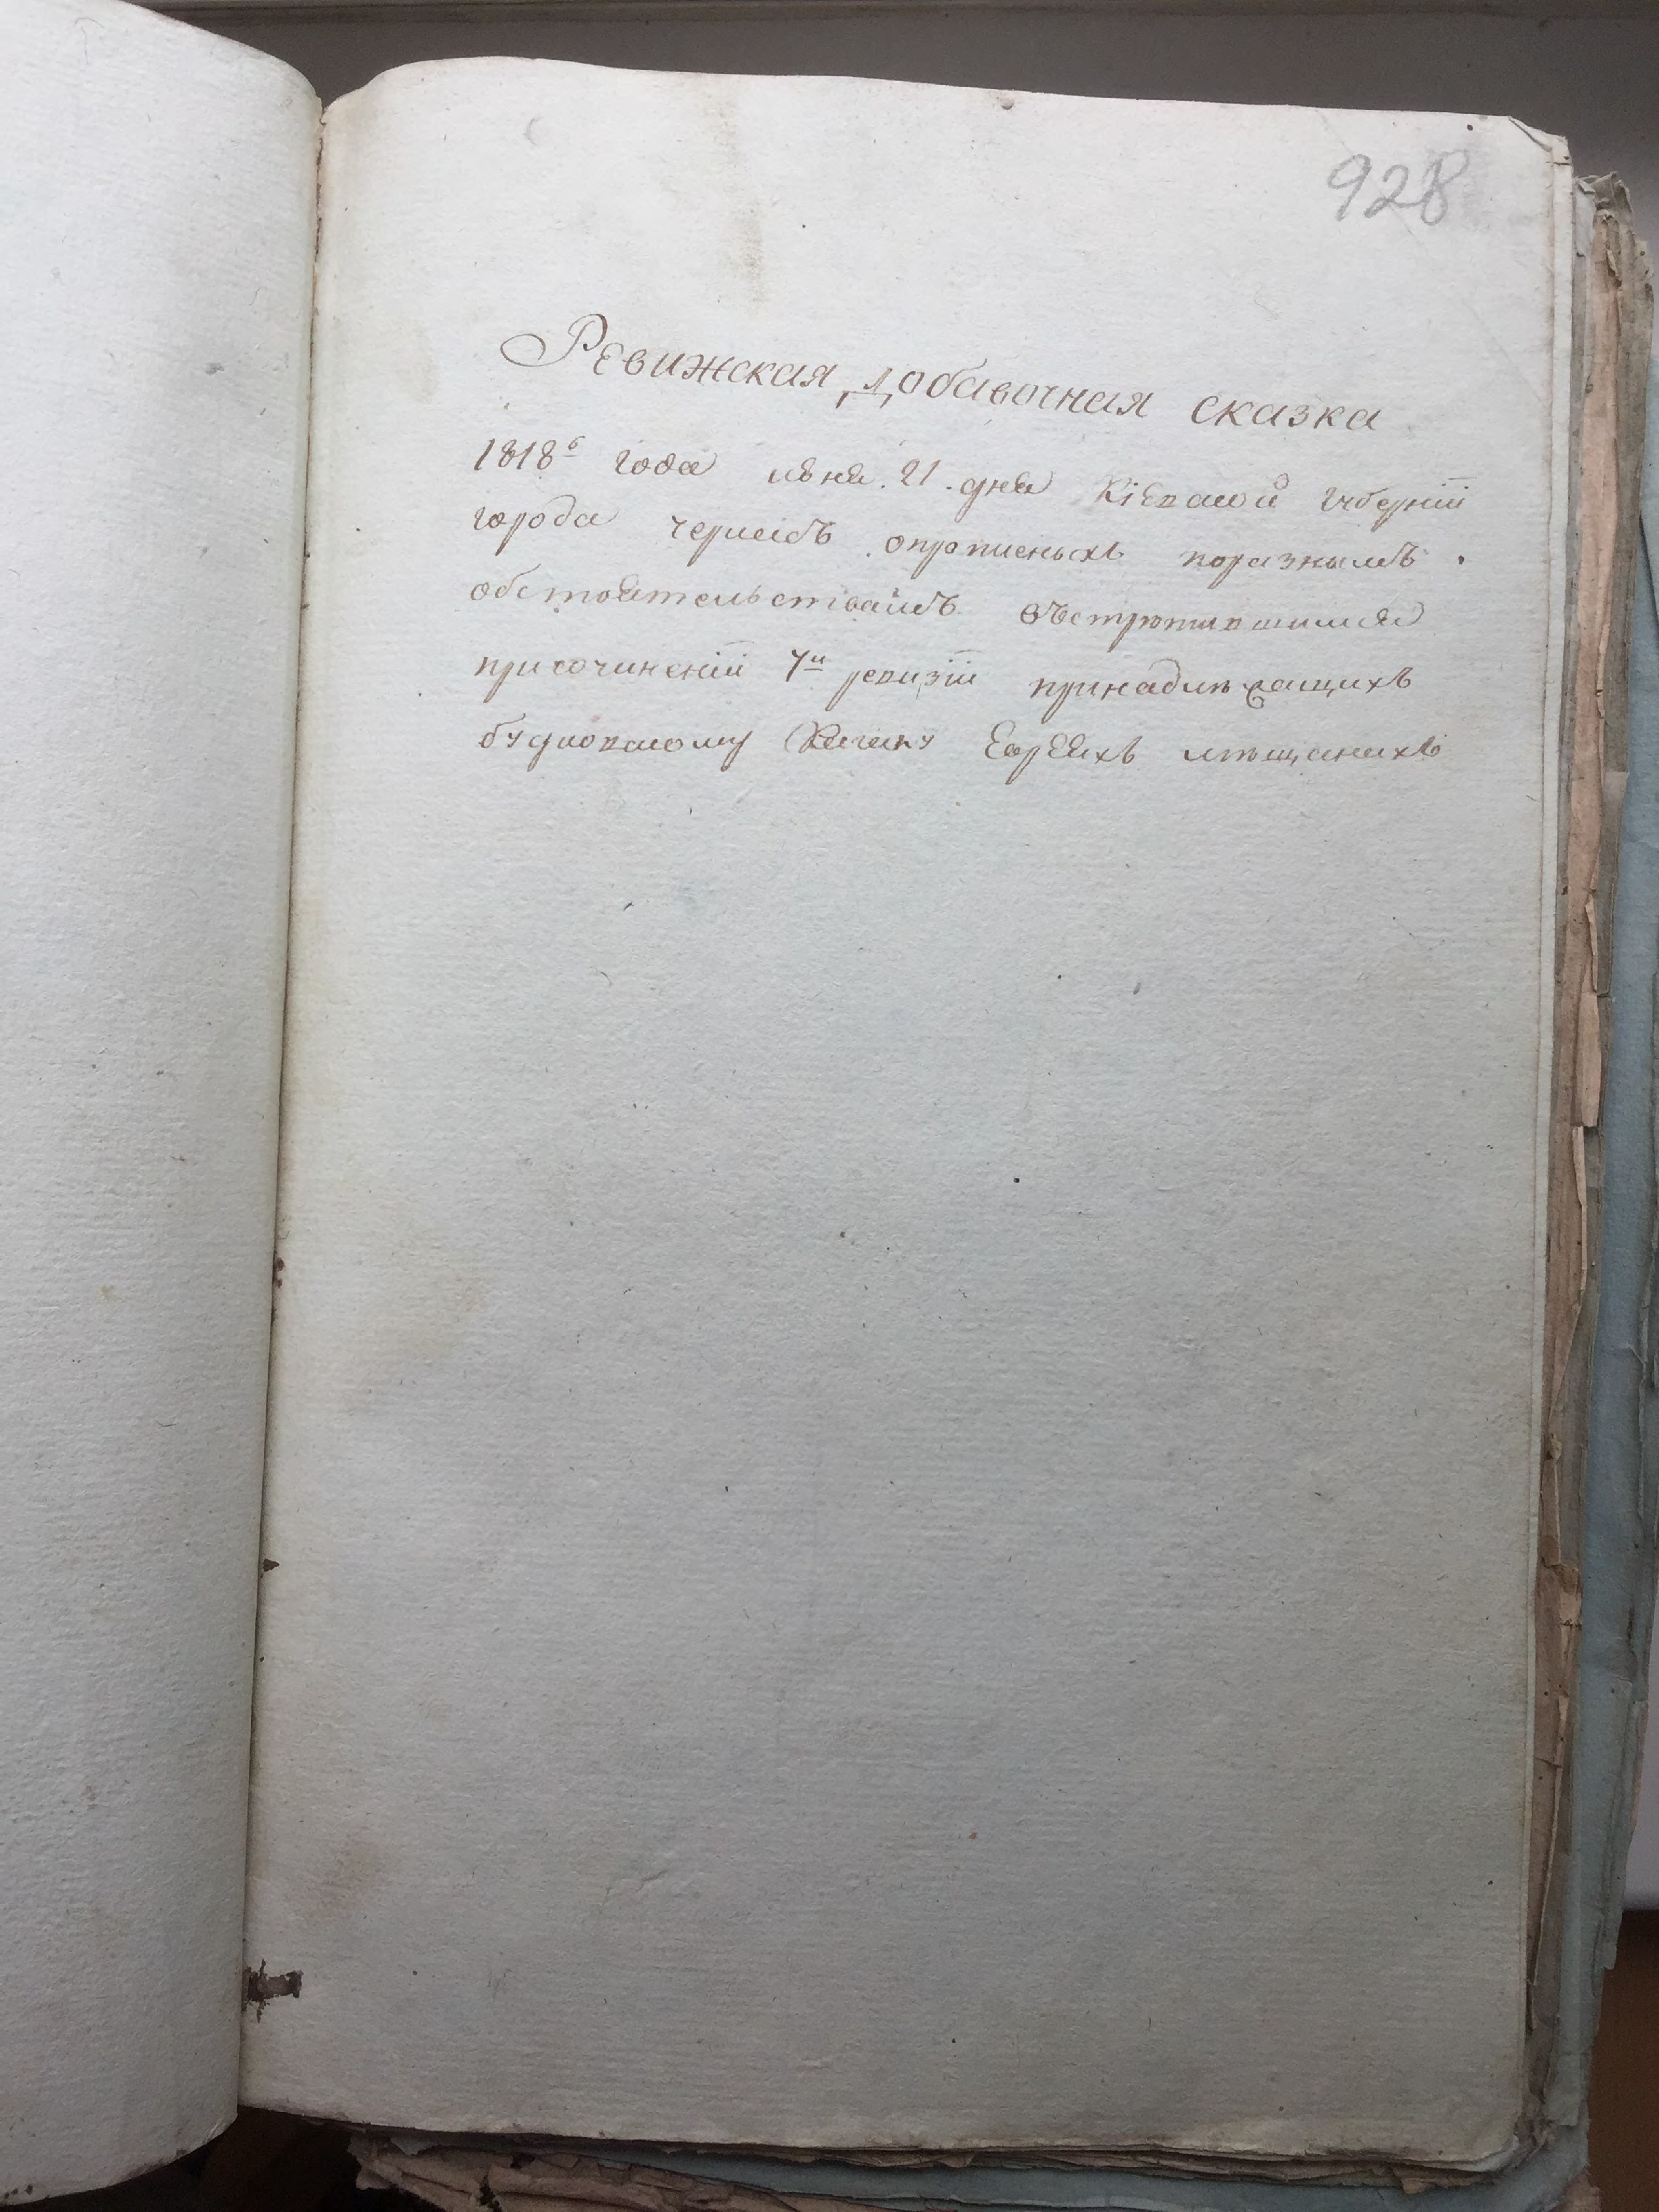 928
Ревижская добавочная сказка
1818ᵇ года июня. 21. дня Кіевской Губерніи
города опропиеныхъ поразнымъ
обстоятельствамъ встрѣтившимся
присочиненіи 7и ревизіи принадлѣжащихъ
Кагалу Евреихъ мѣщанихъ